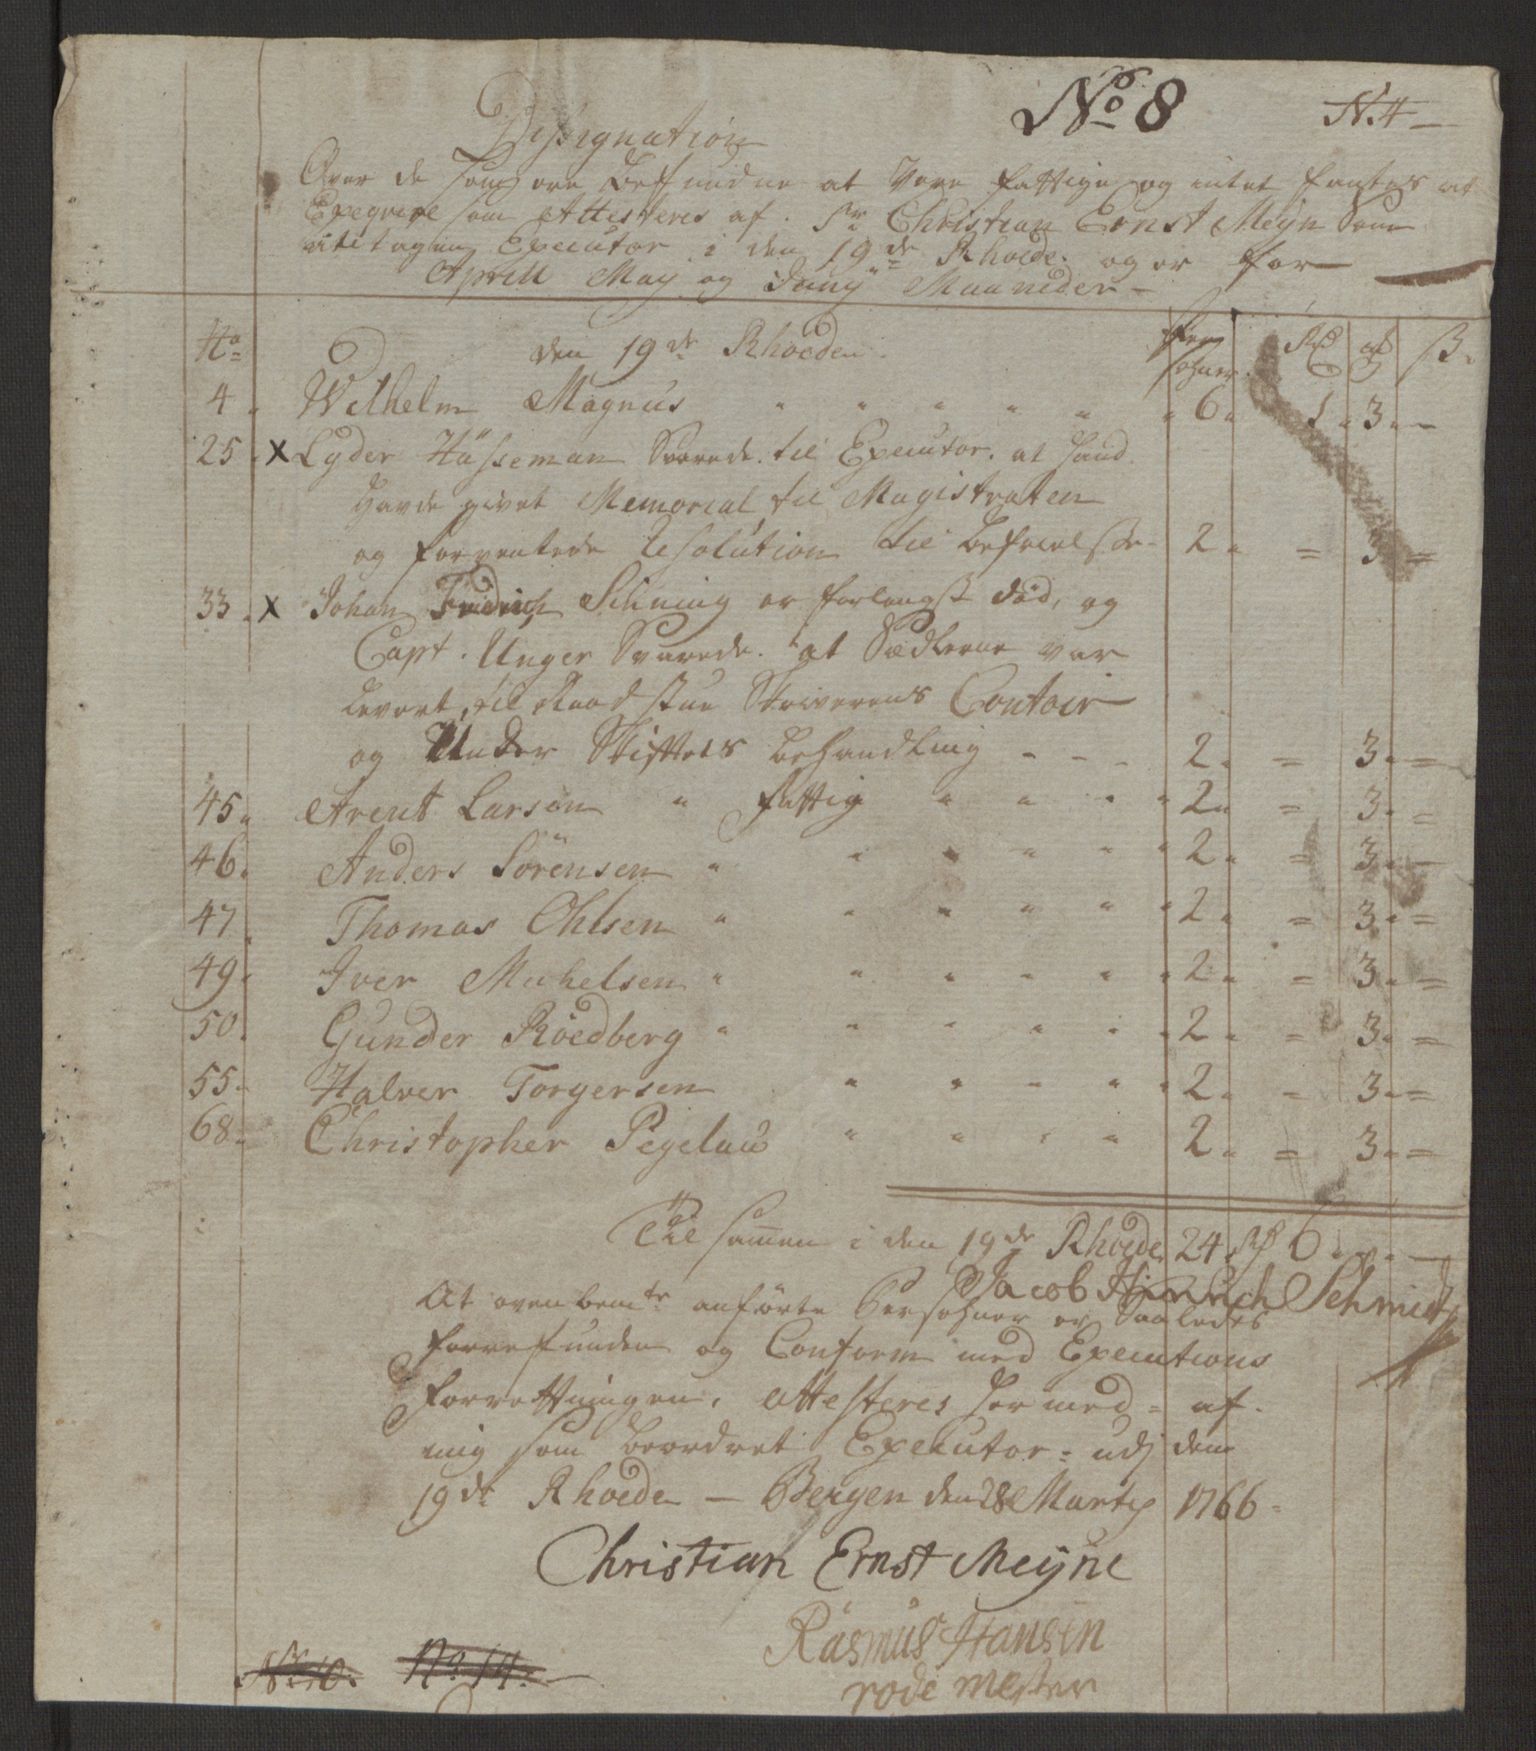 No 8
N. 4
Dissignation
Over de som ere befundne at være fattige og intet fantes at
Exeqvere som Attesteres af Sr Christian Ernst Meyn som
Executor i den 19de Rhoede og er for
Aprill May og Junij Maaneder
No den 19de Rhoeden Persohner Rd
4 Wilhelm Magnus 6 1 3
25 X Lyder Hüsseman Svarede til Executor at hand
Havde givet Memorial til Magistraten
og forventede Resolution til befrielsse 2 3
33 X Johan Fridrich Schning er forlengst død, og
Capt. Unger Svarede at Sædlerne var
Levert til Raadstue Skriverens Contoir
og Under Skifftets behandling 2 3
45 Arent Larsen fattig 2 3
46 Anders Sörensen 2 3
47 Thomas Ohlsen 2 3
49 Iver Michelsen 2 3
50 Gunder Röedberg 2 3
55 Halver Torgersen 2 3
68 Christopher Pegelau 2 3
Tilsamen i den 19de Rhoede 24 Rd 6
Jacob Hinrich Schmidt
At ovenbemte anførte Persohner er Saaledes
forrefunden og Conform med Executions
forrettningen, attesteres hermed af
mig som beordret Executor udj den
19de Rhoede - Bergen den 28 Martij 1766
Christian Ernst Meÿne
Rasmus Hansen
rode Mester
No 10.
No 14.